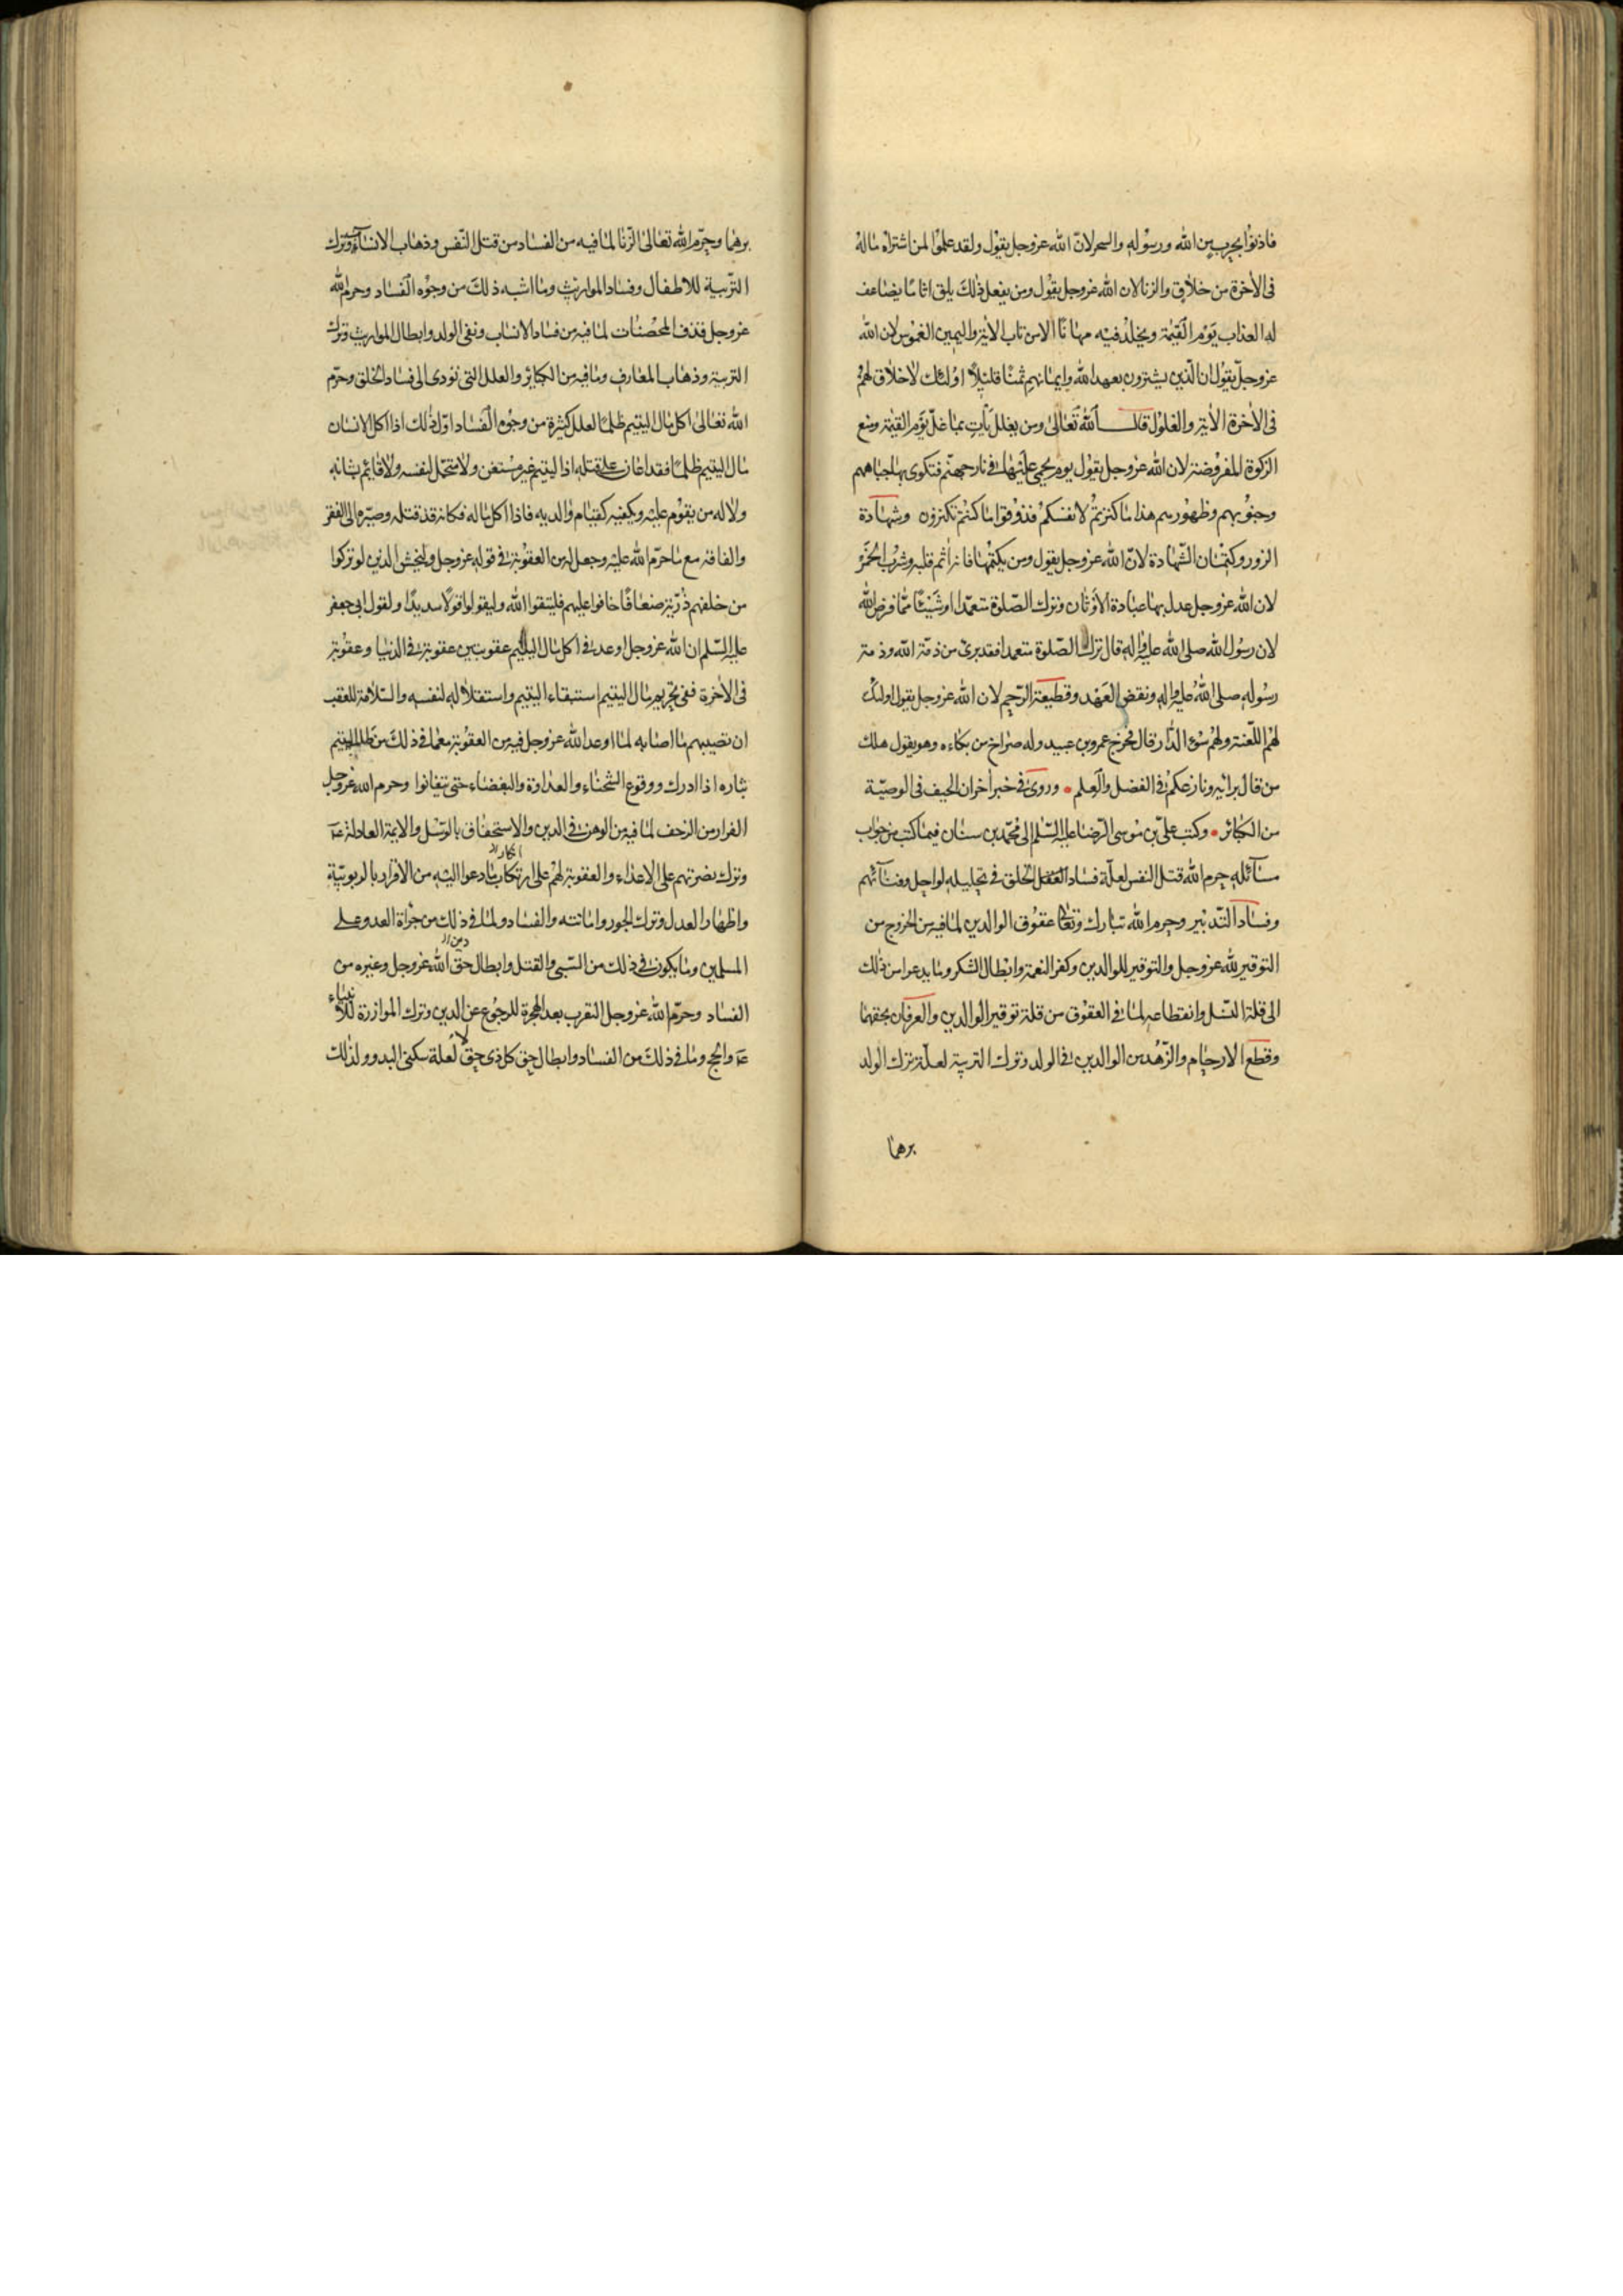 فاذنوا بحرب من الله ورسوله والسحر لان الله عز وجل يقول ولقد علموا لمن اشتراه ماله
فى الآخرة من خلاق والزنا لان الله عز وجل يقول ومن يفعل ذلك يلق اثاما يضاعف
له العذاب يوم القيمة ويخلد فيه مهانا الا من تاب الاية واليمين الغموس لان الله
عز وجل يقول ان الذين يشترون بعهد الله وايمانهم ثمنا قليلا اولئك لا خلاق لهم
فى الآخرة الآية والغلول قال الله تعالى ومن يغلل يأت بما غل يوم القيمة ومنع
الزكوة المفروضة لان الله عز وجل يقول يوم يحمى عليها فى نار جهنم فتكوى بها جباههم
وجنوبهم وظهورهم هذا ما كنزتم لانفسكم فذوقوا ما كنتم تكنزون وشهادة
الزور وكتمان الشهادة لان الله عز وجل يقول ومن يكتمها فانه اثم قلبه وشرب الخمر
لان الله عز وجل عدل بها عبادة الاوثان وترك الصلوة متعمدا او شيئا مما فرض الله
لان رسول الله صلى الله عليه واله قال من ترك الصلوة متعمدا فقد برئ من ذمة الله وذمة
رسوله صلى الله عليه واله ونقض العهد وقطيعة الرحم لان الله عز وجل يقول اولئك
لهم اللعنة ولهم سوء الدار قال فخرج عمرو بن عبيد وله صراخ من بكاءه وهو يقول هلك
من قال برائيه ونازعكم فى الفضل والعلم وروى فى خبر آخر ان الحيف فى الوصية
من الكبائر وكتب على بن موسى الرضا عليه السلم الى محمد بن سنان فيما كتب من جواب
مسآئله حرم الله قتل النفس لعلة فساد الخلق فى تحليله لو احل وفنآئهم
وفساد التدبير وحرم الله تبارك وتعالى عقوق الوالدين لما فيه من الخروج من
التوقير لله عز وجل والتوقير للوالدين وكفر النعمة وابطال الشكر وما يدعوا من ذلك
الى قلة النسل وانقطاعه لما فى العقوق من قلة توقير الوالدين والعرفان بحقهما
وقطع الارحام والزهد من الوالدين فى الولد وترك التربية لعلة ترك الولد
برهما
برهما وحرم الله تعالى الزنا لما فيه من الفساد من قتل النفس وذهاب الانساب وترك
التربية للاطفال وفساد المواريث وما اشبه ذلك من وجوه الفساد وحرم الله
عز وجل قذف المحصنات لما فيه من فساد الانساب ونفى الولد وابطال المواريث وترك
التربية وذهاب المعارف وما فيه من الكبائر والعلل التى تؤدى الى فساد الخلق وحرم
الله تعالى اكل مال اليتيم ظلما لعلل كثيرة من وجوه الفساد اول ذلك اذا اكل الانسان
مال اليتيم ظلما فقد اعان على قتله اذ اليتيم غير مستغن ولا متحمل لنفسه ولا قائم بشانه
ولا له من يقوم عليه ويكفيه كقيام والديه فاذا اكل ماله فكانه قد قتله وصيره الى الفقر
والفاقة مع ما حرم الله عليه وجعل له من العقوبة فى قوله عز وجل وليخش الذين لو تركوا
من خلفهم ذرية ضعافا خافوا عليهم فليتقوا الله وليقولوا قولا سديدا ولقول ابى جعفر
عليه السلم ان الله عز وجل اوعد فى اكل مال اليتيم عقوبتين عقوبة فى الدنيا وعقوبة
فى الآخرة ففى تحريم مال اليتيم استبقاء اليتيم واستقلاله لنفسه والسلامة للعقب
ان تصيبهم ما اصابه لما اوعد الله عز وجل فيه من العقوبة مع ما فى ذلك من طلب اليتيم
بثاره اذا ادرك ووقوع الشحناء والعداوة والبغضاء حتى يتفانوا وحرم الله عز وجل
الفرار من الزحف لما فيه من الوهن فى الدين والاستخفاف بالرسل والايمة العادلة عـ
وترك نصرتهم على الاعداء والعقوبة لهم على انكار ما دعوا اليه من الاقرار بالربوبية
واظهار العدل وترك الجور واماتته والفساد ولما فى ذلك من جرأة العدو على
المسلمين وما يكون فى ذلك من السبى والقتل وابطال حق دين الله عز وجل وغيره من
الفساد وحرم الله عز وجل التعرب بعد الهجرة للرجوع عن الدين وترك الموازرة للانبياء
عـ والحجج وما فى ذلك من الفساد وابطال حق كل ذى حق لا لعلة سكنى البدو ولذلك